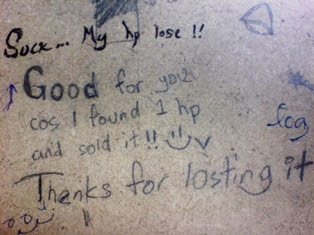 Sucx... My hp lose !!
Good for you
cos I found 1 hp
and sold it!!
log
Thanks for losting it